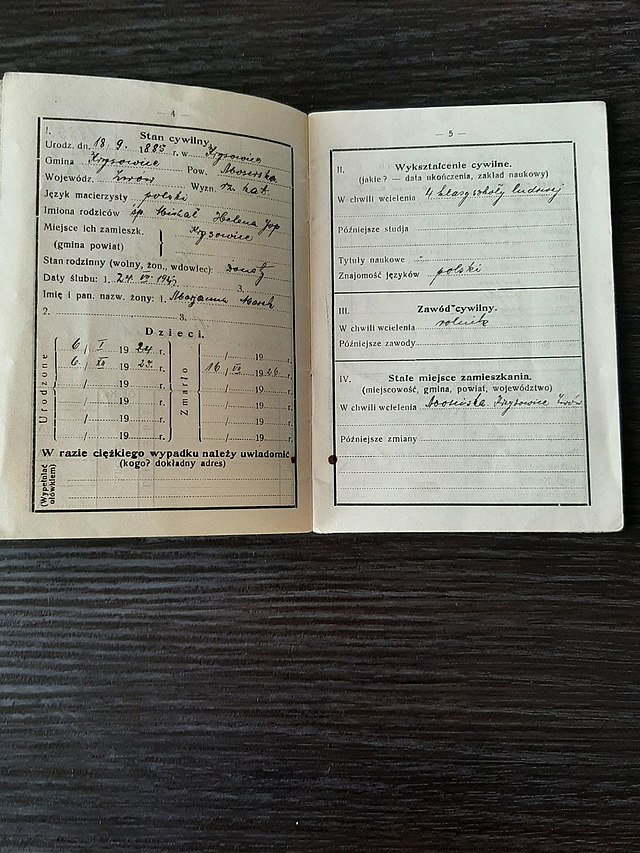 — 4 —
I. Stan cywilny.
Urodz. dn. 18. 9. 1885 r. w Krysowice
Gmina Krysowice Pow. Mościska
Wojewódz. Lwów Wyzn. rz. kat.
Język macierzysty polski
Imiona rodziców śp. Michał Helena Jop
Miejsce ich zamieszk. Krysowice
(gmina powiat)
Stan rodzinny (wolny, żon., wdowiec): żonaty
Daty ślubu: 1. 24 VII 3.
Imię i pan. nazw. żony: 1. Maryanna
2. 3.
Dzieci.
Urodzone
6 / I 19 24 r.
6 / XII 19 25 r.
/ 19 r.
/ 19 r.
/ 19 r.
/ 19 r.
Zmarło
/ 19 r.
16 / VII 19 26 r.
/ 19 r.
/ 19 r.
/ 19 r.
/ 19 r.
W razie ciężkiego wypadku należy uwiadomić
(kogo? dokładny adres)
(Wypełniać ołówkiem)
— 5 —
II. Wykształcenie cywilne.
(jakie? — data ukończenia, zakład naukowy)
W chwili wcielenia 4 klasy szkoły ludowej
Późniejsze studja
Tytuły naukowe -
Znajomość języków polski
III. Zawód cywilny.
W chwili wcielenia rolnik
Późniejsze zawody
IV. Stałe miejsce zamieszkania.
(miejscowość, gmina, powiat, województwo)
W chwili wcielenia Mościska Krysowice Lwów
Późniejsze zmiany